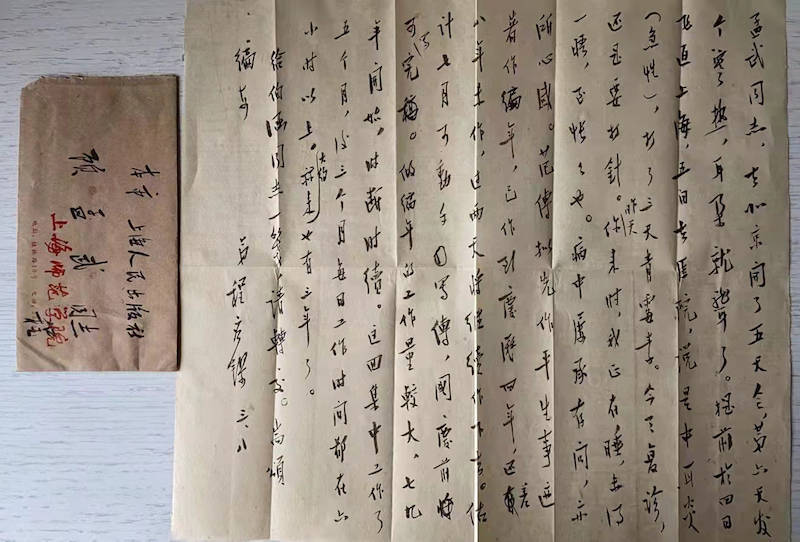 孟武同志,去北京开了五天会,第六天发
个寒热,耳朵就聋了。提前于四日
飞返上海,五日去医院,说是中耳炎
(急性),打了三天青霉素。今天复诊,
还是要打针。你昨天来时,我正在睡,失得
一晤,至怅怅也。病中屡承存问,亦
所心感。范传拟先作平生事迹
著作编年,已作到庆历四年,还差
八年未作,过两天将继续作下去。估
计七月可动手写傳,国庆前将
可完稿。做编年的工作量较大,七九
年开始,时断时续。这回集中工作了
五个月,后三个月每日工作时间都在六
小时以上。大约也有三年了。
给伯涵同志一笺,请转交。尚颂
编安
弟程应镠 三、八
本市 上海人民出版社
顾孟武 同志
上海师范学院 程